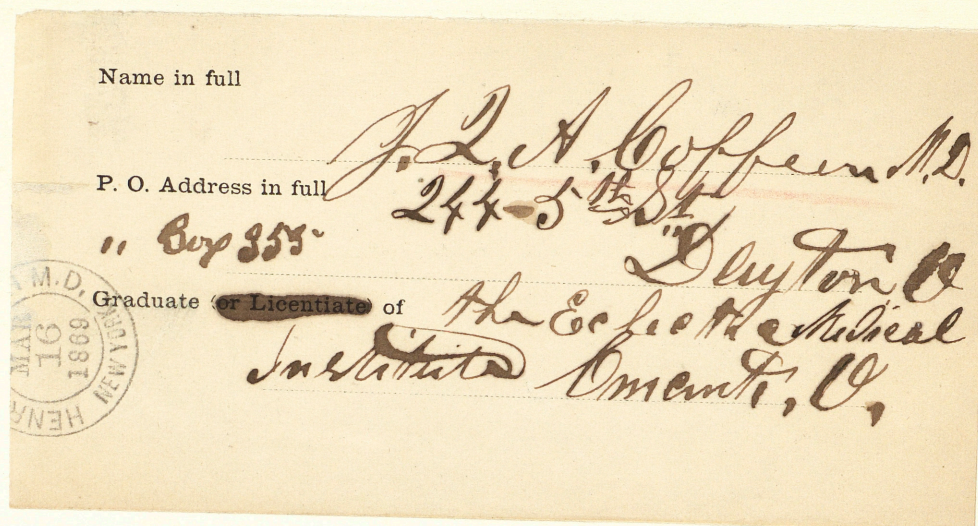 Name in full
J. Q. A. Coffeen M.D.
P. O. Address in full 244 - 5th St
" Box 355
Dayton O
Graduate (or Licentiate) of the Eclectic Medical
Institute Cincinnti, O.
M.D.
MAR
16
1869
HENR
NEW YORK